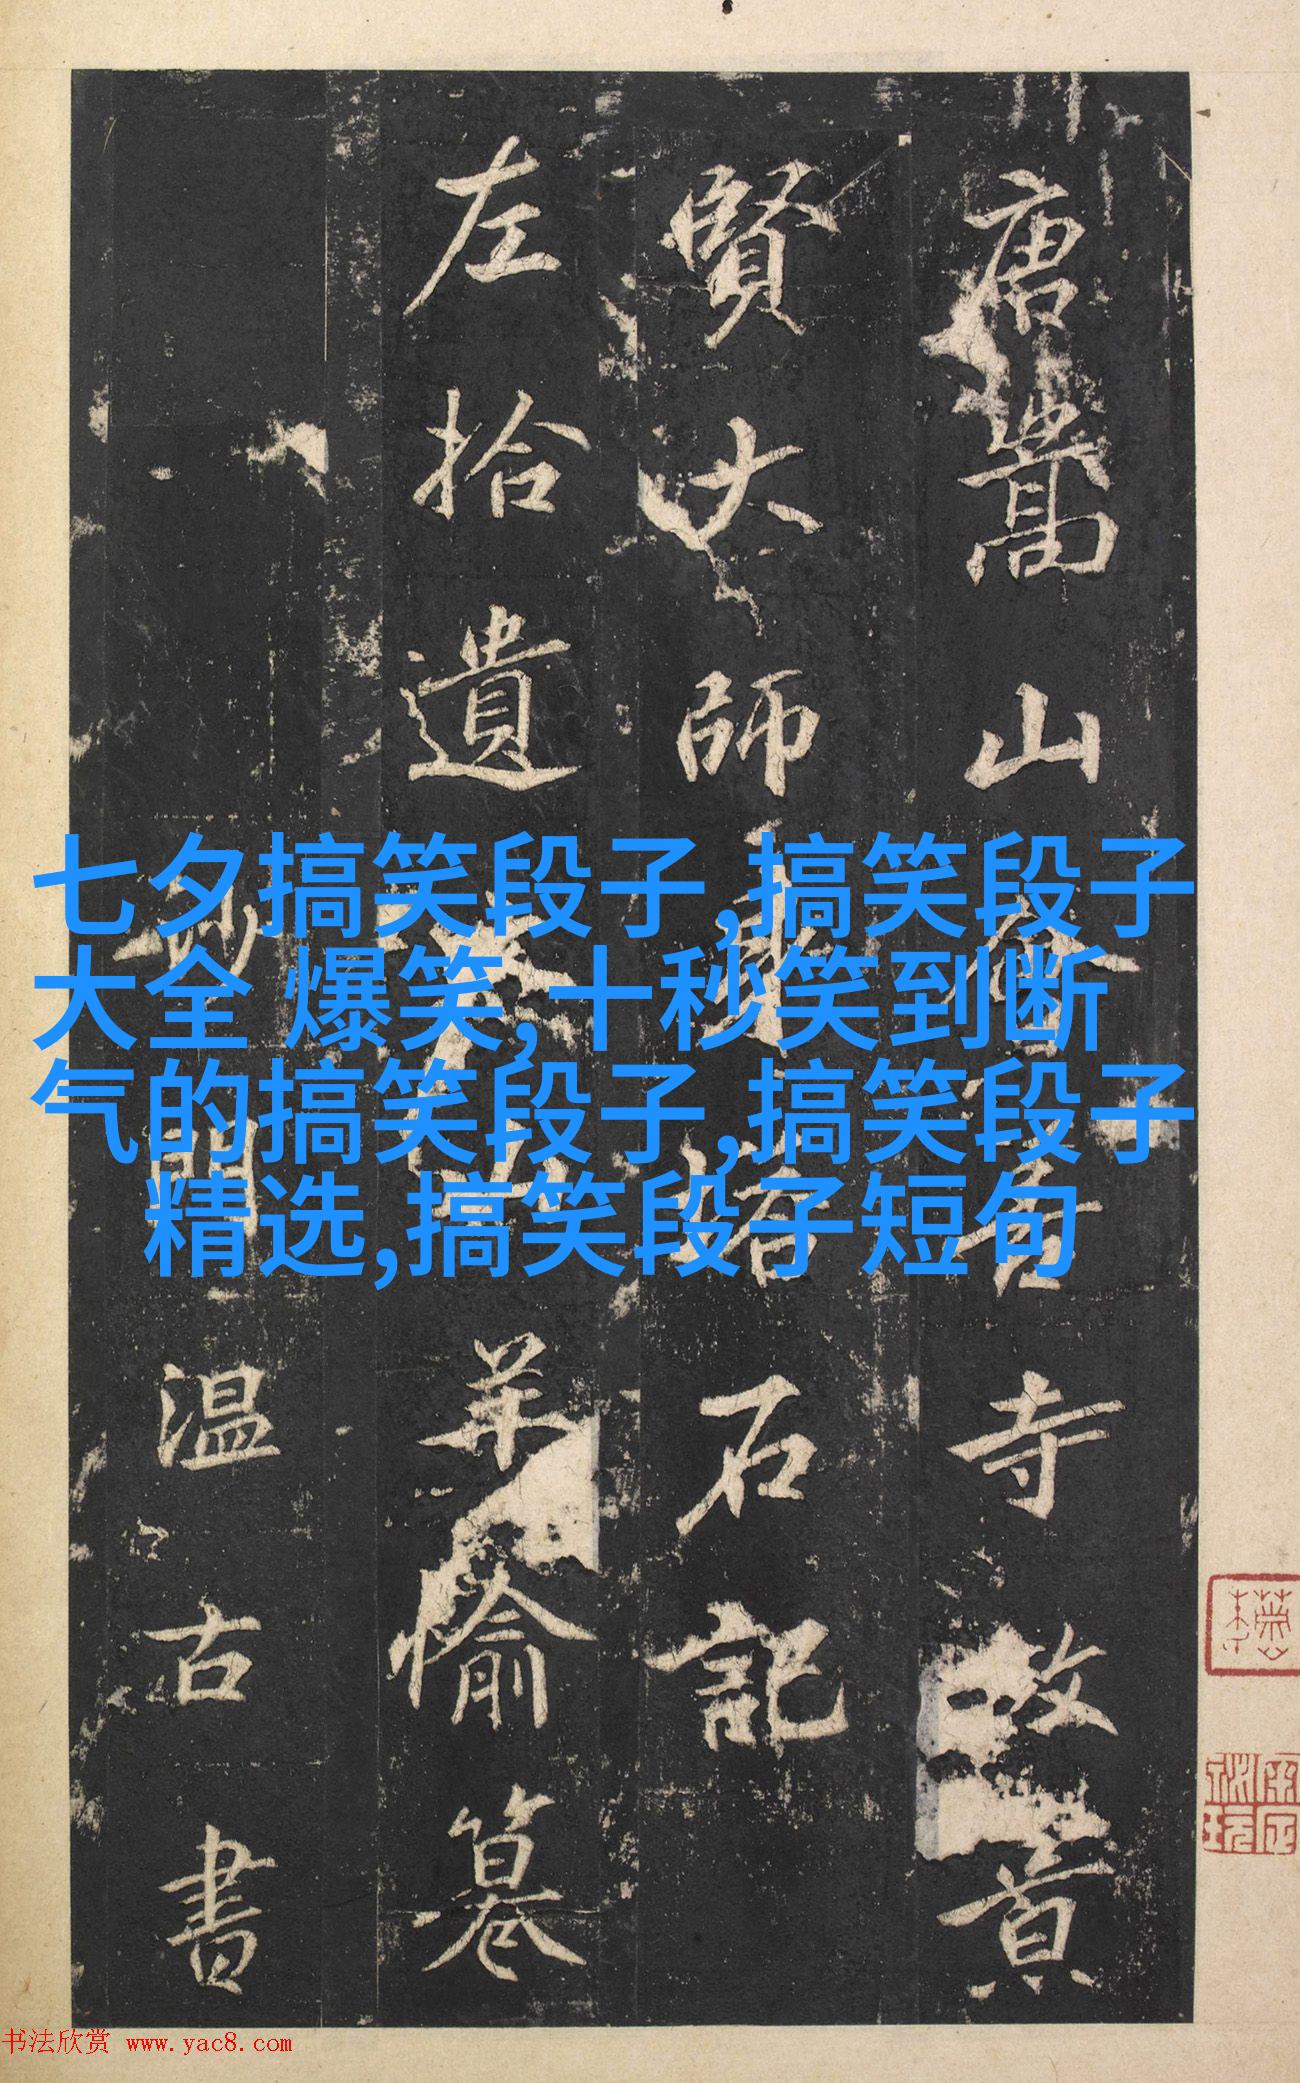 唐嵩山會善寺故景
賢大師身塔石記
左拾遺太山羊愉
沙門溫古書
七夕搞笑段子,搞笑段子
大全 爆笑,十秒笑到断
气的搞笑段子,搞笑段子
精选,搞笑段子短句
书法欣赏 www.yac8.com